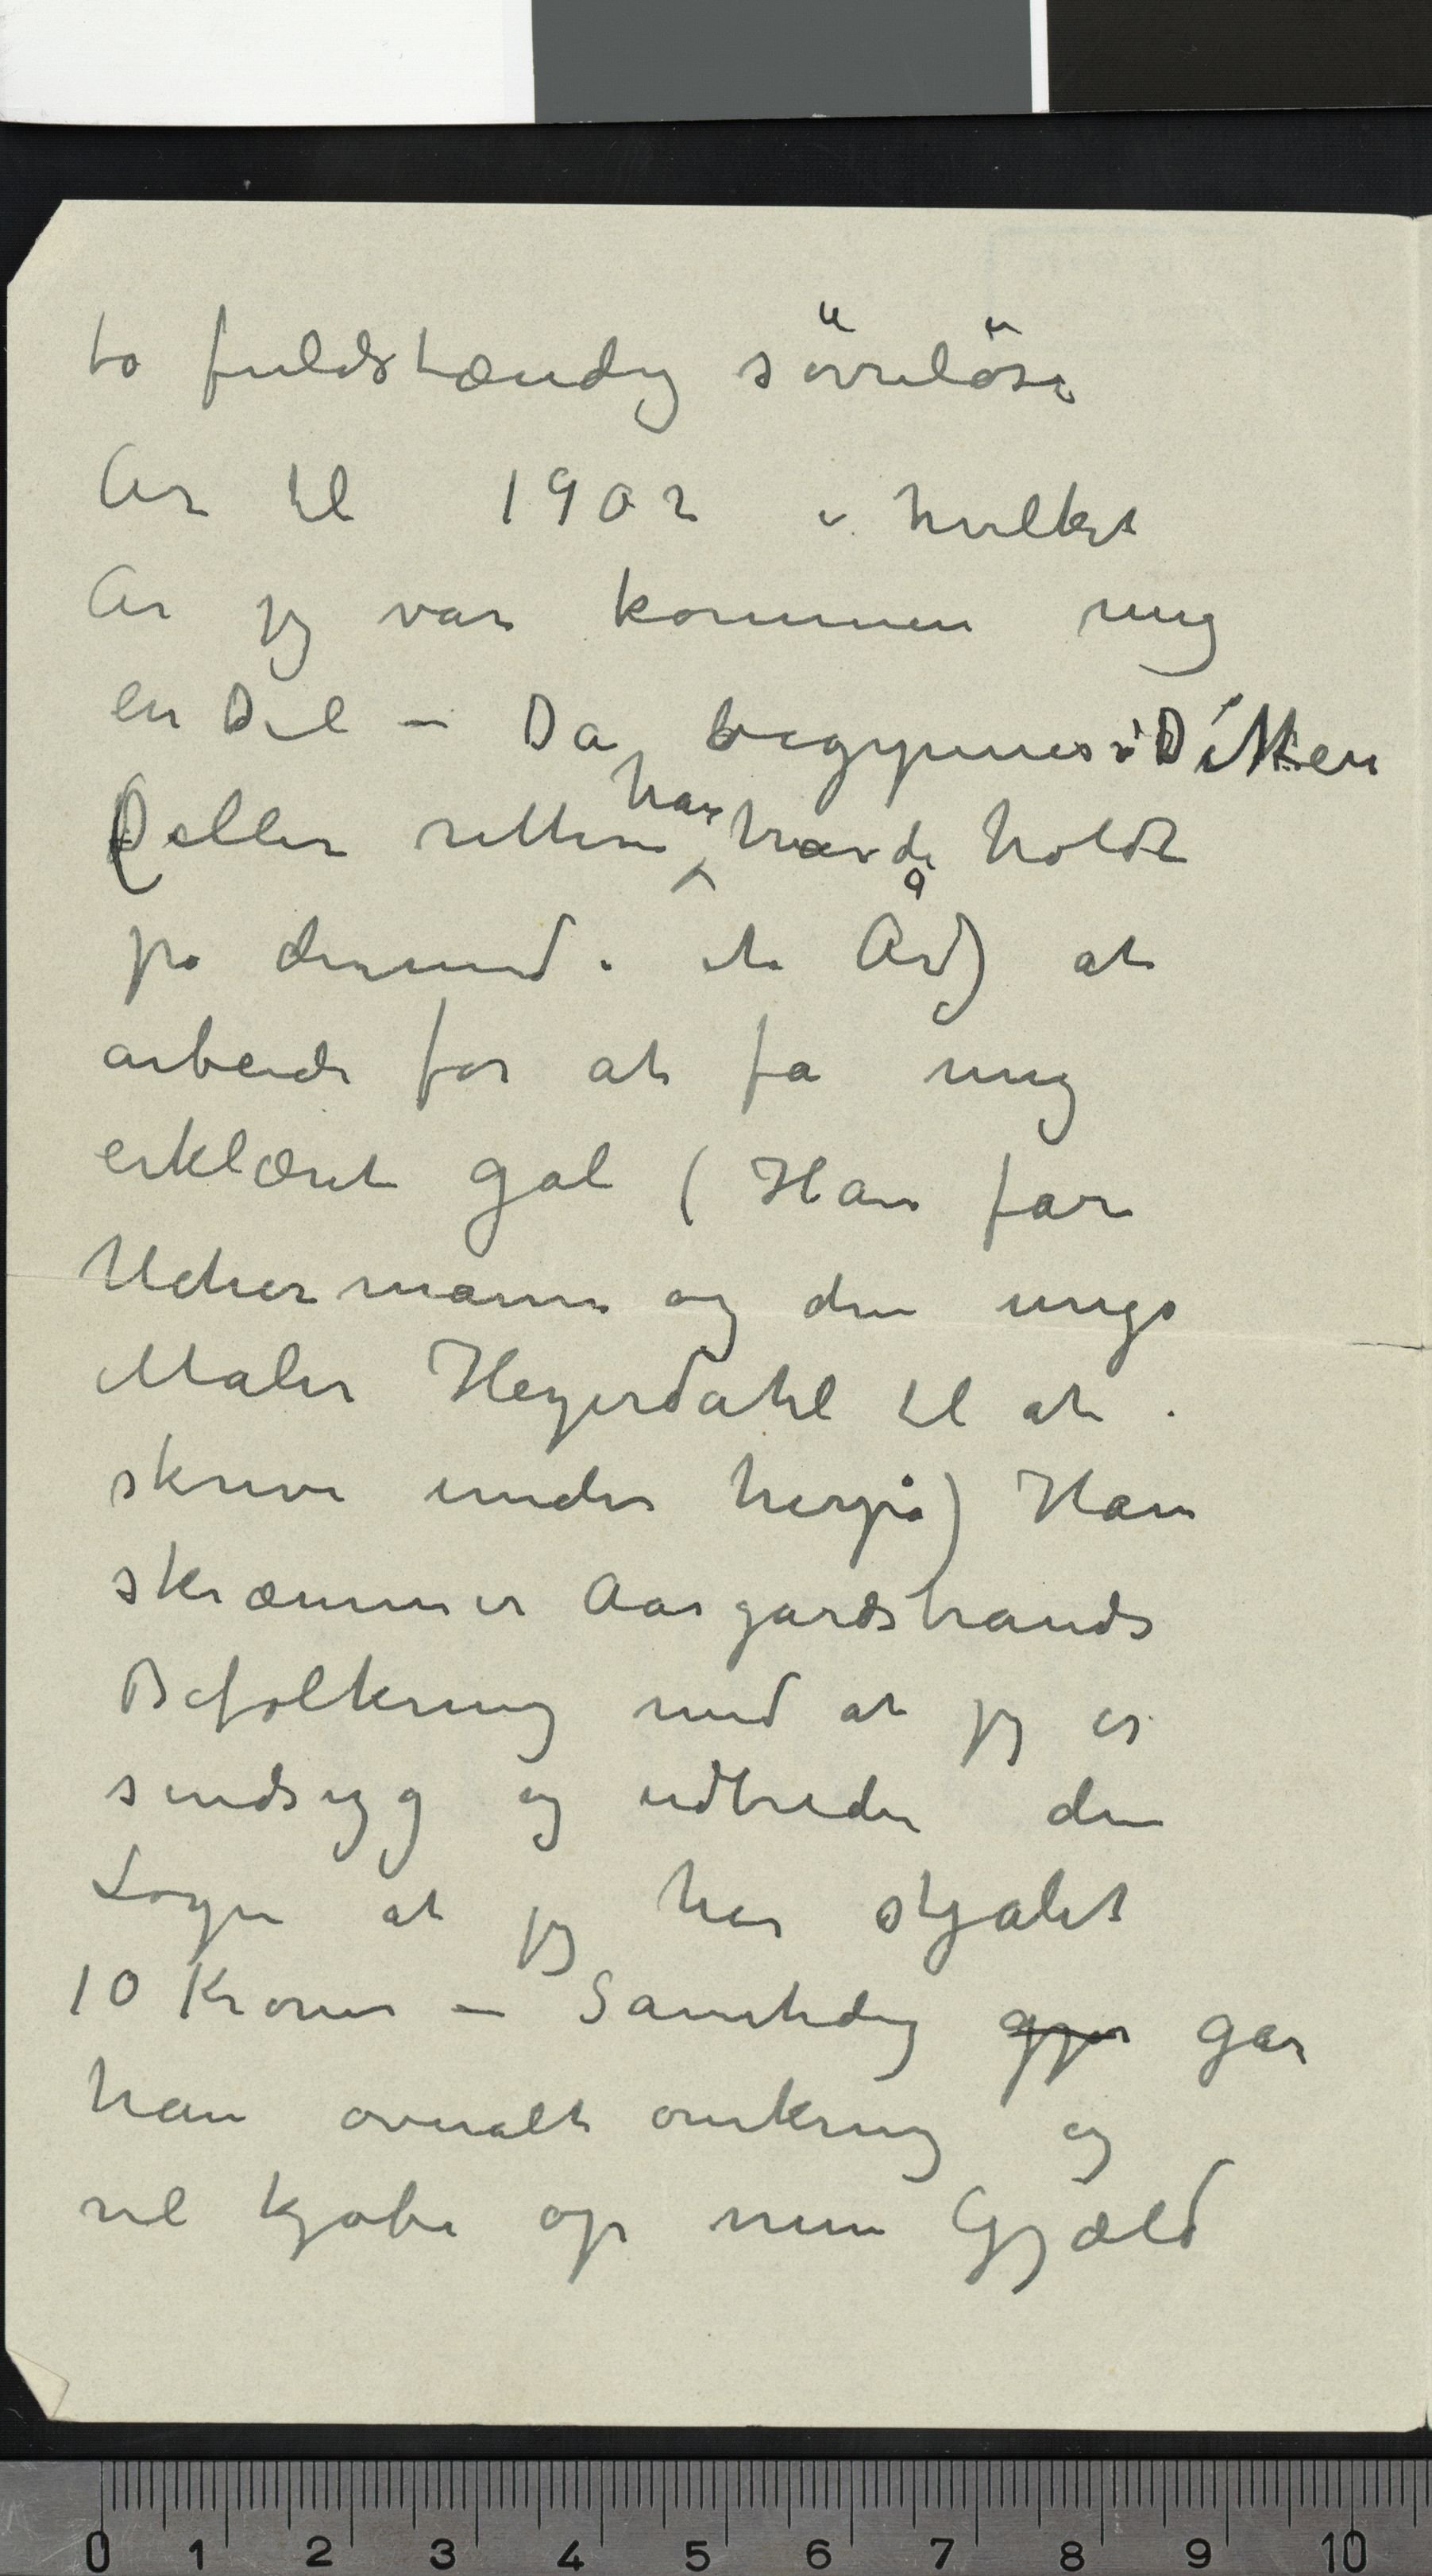 to fuldstændig sövnlöse
År til 1902 i hvilket
År jeg var kommen mig
en Del – Da begynner Ditten
(eller rettere han havde holdt
på dermed i et År) at
arbeide for at få mig
erklæret gal (Han får
Uchermann og den unge
Maler Heyerdahl til at
skrive under herpå) Han
skræmmer Aasgardstrands
Befolkning med at jeg er
sindsyg og udbreder den
Logn at jeg har stjålet
10 Kroner – Samtidig gjør går
han overalt omkring og
vil kjøbe op min Gjæld
0 1 2 3 4 5 6 7 8 9 10